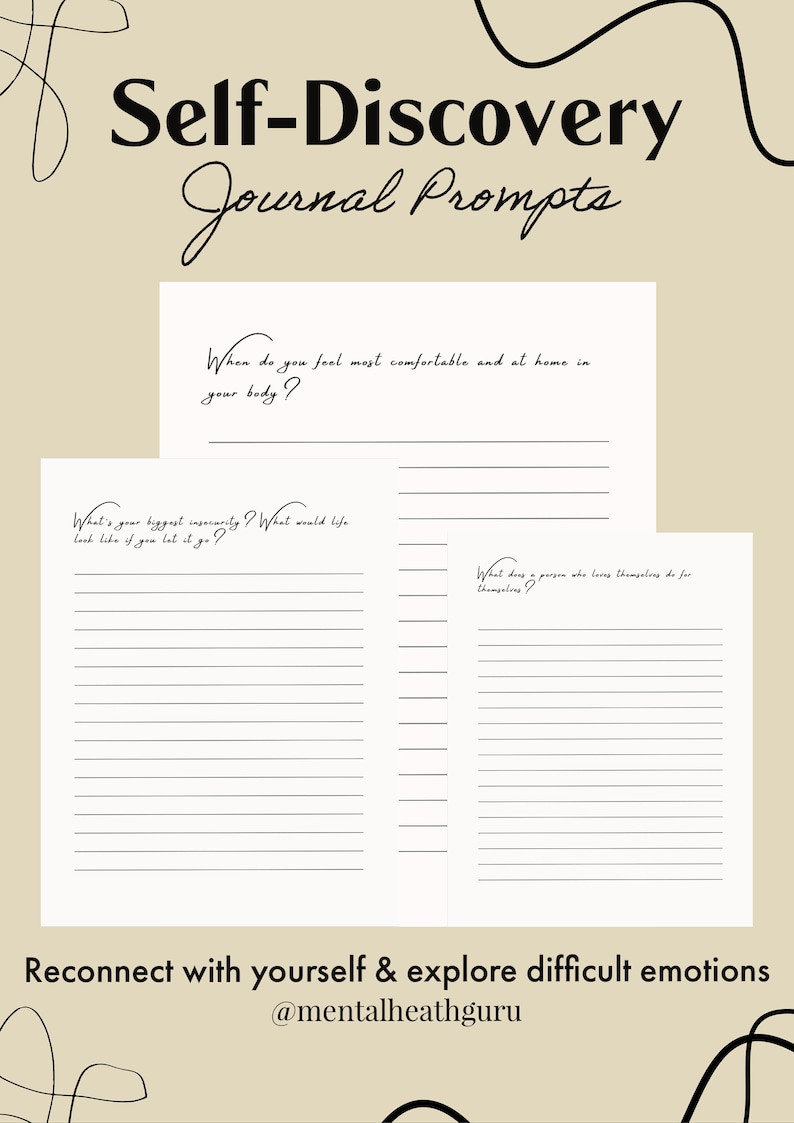 Self-Discovery
Journal Prompts
When do you feel most comfortable and at home in
your body?
What's your biggest insecurity? What would life
look like if you let it go?
What does a person who loves themselves do for
themselves?
Reconnect with yourself & explore difficult emotions
@mentalheathguru